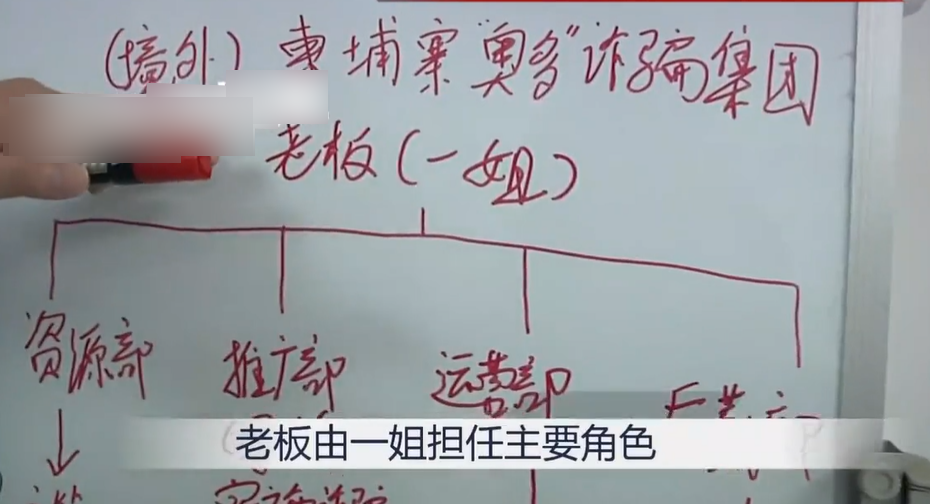 (境外) 柬埔寨"奥多"诈骗集团
老板(一姐)
资源部 推广部 运营部
老板由一姐担任主要角色